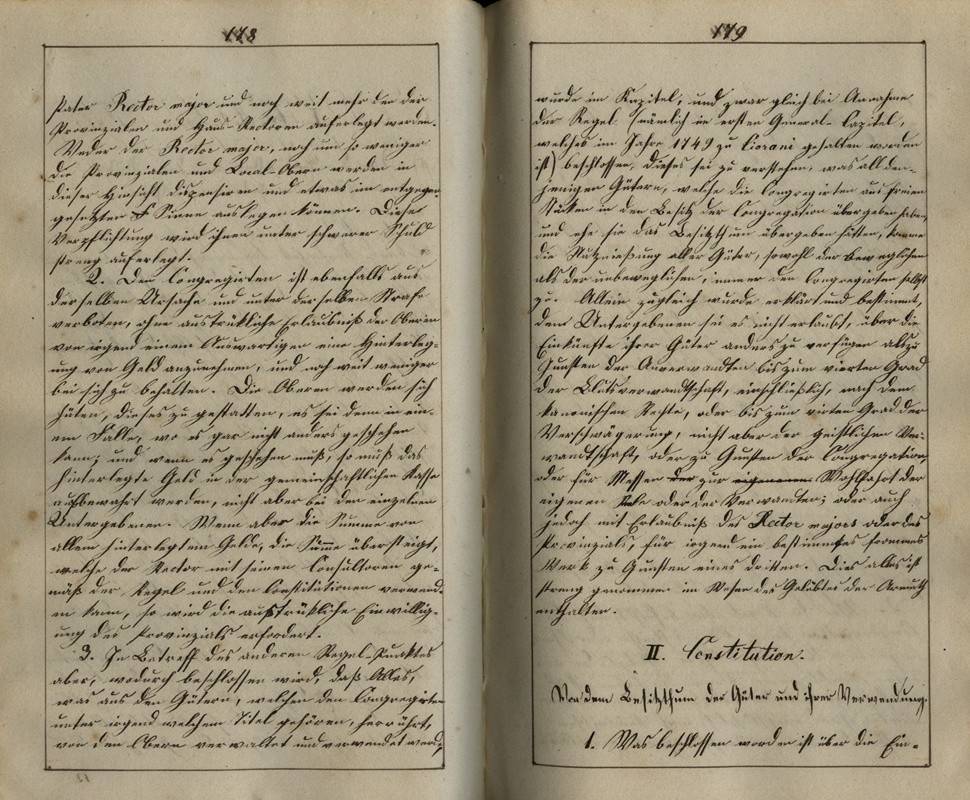 178
Pater Rector major und noch weit mehr den der
Provinzialen und Haus-Rectoren auferlegt werden.
Weder der Rector major, noch um so weniger
die Provinzialen und Local-Obern werden in
dieser Hinsicht dispensiren und etwas im entgegen
gesetzten Sinne auslegen können. Diese
Verpflichtung wird ihnen unter schwerer Schuld
streng auferlegt.
2. Den Congregirten ist ebenfalls aus
derselben Ursache und unter derselben Strafe
verboten, ohne ausdrükliche Erlaubniß der Oberen
von irgend einem Auswärtigen eine Hinterleg-
ung von Geld anzunehmen, und noch weit weniger
bei sich zu behalten. Die Oberen werden sich
hüten, dieses zu gestatten, es sei denn in ein-
em Falle, wo es gar nicht anders geschehen
kann; und wenn es geschehen muß, so muß das
hinterlegte Geld in der gemeinschaftlichen Kasse
aufbewahrt werden, nicht aber bei den einzelnen
Untergebenen. Wenn aber die Summe von
allem hinterlegtem Gelde, die Summe übersteigt,
welche der Rector mit seinen Consultoren ge-
mäß der Regel und den Constitutionen verwend-
en kann, so wird die ausdrükliche Einwillig-
ung des Provinzials erfordert.
3. In Betreff des anderen Regel-Punktes
aber, wodurch beschlossen wird, daß Alles,
was aus den Gütern, welchen den Congregirten
unter irgend welchem Titel gehören, herrührt,
von den Obern verwaltet und verwendet werde,
179
wurde im Kapitel, und zwar gleich bei Annahme
der Regel (nämlich im ersten General-Capitel,
welches im Jahre 1749 zu Ciorani gehalten worden
ist) beschlossen, dieses sei zu verstehen, was all den-
jenigen Gütern, welche die Congregirten aus freien
Stüken in den Besitz der Congregation übergeben haben,
und ehe sie das Besitzthum übergeben hätten, komme
die Nutznießung aller Güter, sowohl der beweglichen
als der unbeweglichen, immer den Congregirten selbst
zu. Allein zugleich wurde erklärt und bestimmt,
dem Untergebenen sei es nicht erlaubt, über die
Einkünfte ihrer Güter anders zu verfügen als zu
Gunsten der Anverwandten bis zum vierten Grad
der Blutsverwandtschaft, einschließlich, nach dem
kanonischen Rechte, oder bis zum vierten Grad der
Verschwägerung, nicht aber der geistlichen Ver-
wandtschaft, oder zu Gunsten der Congregation,
oder für Messen der zur eigenenen Wohlfahrt der
eigenen Sele oder der Verwandten; oder auch
jedoch mit Erlaubniß des Rector majors oder des
Provinzials, für irgend ein bestimmtes frommes
Werk zu Gunsten eines dritten. Dies alles ist
streng genommen im Wesen des Gelübdes der Armuth
enthalten.
II. Constitution.
Von dem Besitzthum der Güter und ihrer Verwendung.
1. Was beschlossen worden ist über die Ein-